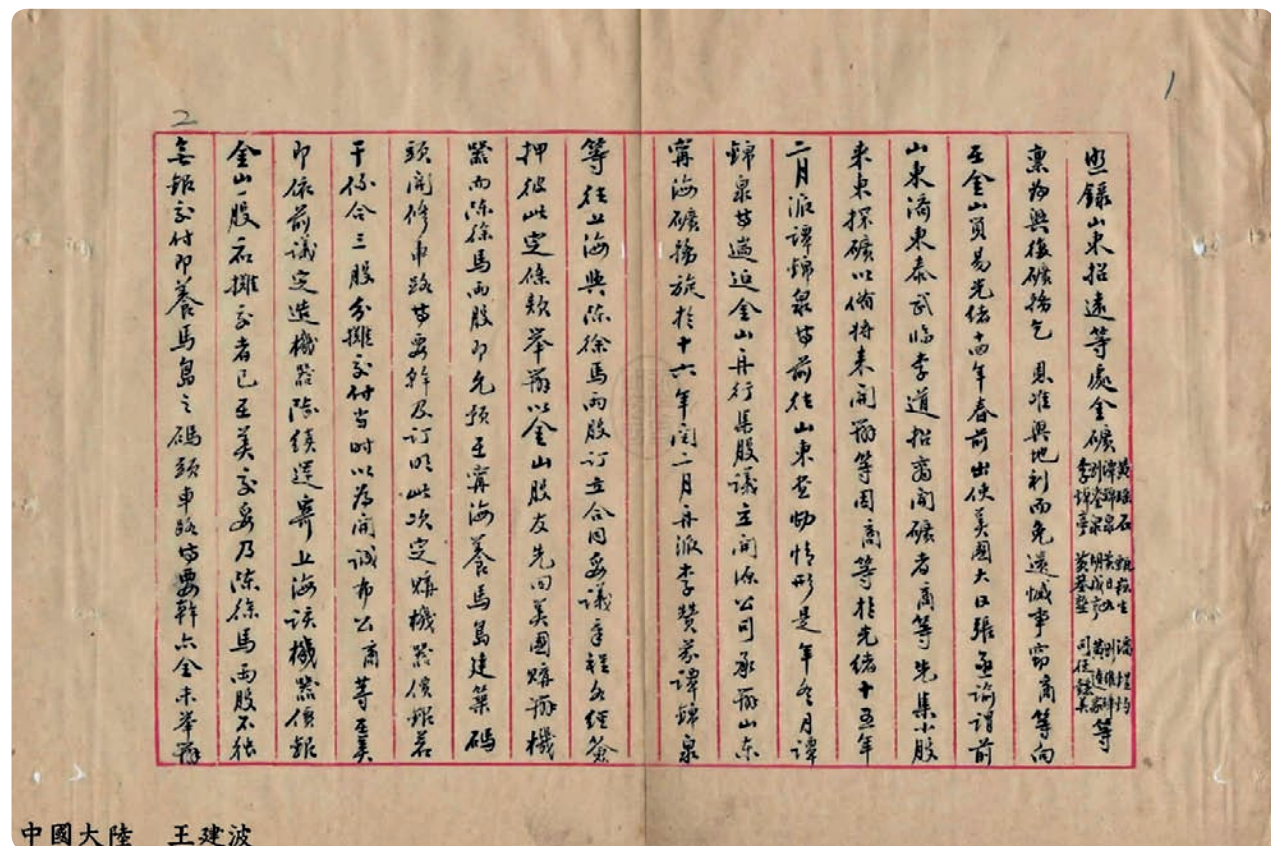 1
照錄山東招遠等處金礦黃瑤石譚錦泉劉荃泉李坤亭甄秋生黃日初明成亨黃基堅潘楷均劉維坤黃連安司徒鎂美等
稟為興復礦務乞 恩准興地利而免遺憾事竊商等向
在金山貿易光緒十四年春前出使美國大臣張面諭謂前
山東濟東泰武臨李道招商開礦者商等先集小股
來東探礦以備將來開辦等因商等於光緒十五年
二月派譚錦泉等前往山東查勘情形是年冬月譚
錦泉等遄返金山再行集股議立開源公司承辦山東
甯海礦務旋於十六年閏二月再派李贊芬譚錦泉
等往上海與陳徐馬兩股訂立合同妥議章程各經簽
押彼此定條款舉辦以金山股友先回美國購辦機
器而陳徐馬兩股即允預在甯海養馬島建築碼
頭開修車路等要幹及訂明此次定購機器價銀若
干係合三股分攤交付當時以為開誠布公商等至美
即依前議定造機器陸續運寄上海該機器價銀
金山一股應攤交者已在美交妥乃陳徐馬兩股不獨
無銀交付即養馬島之碼頭車路等要幹亦全未舉辦
2
中國大陸 王建波